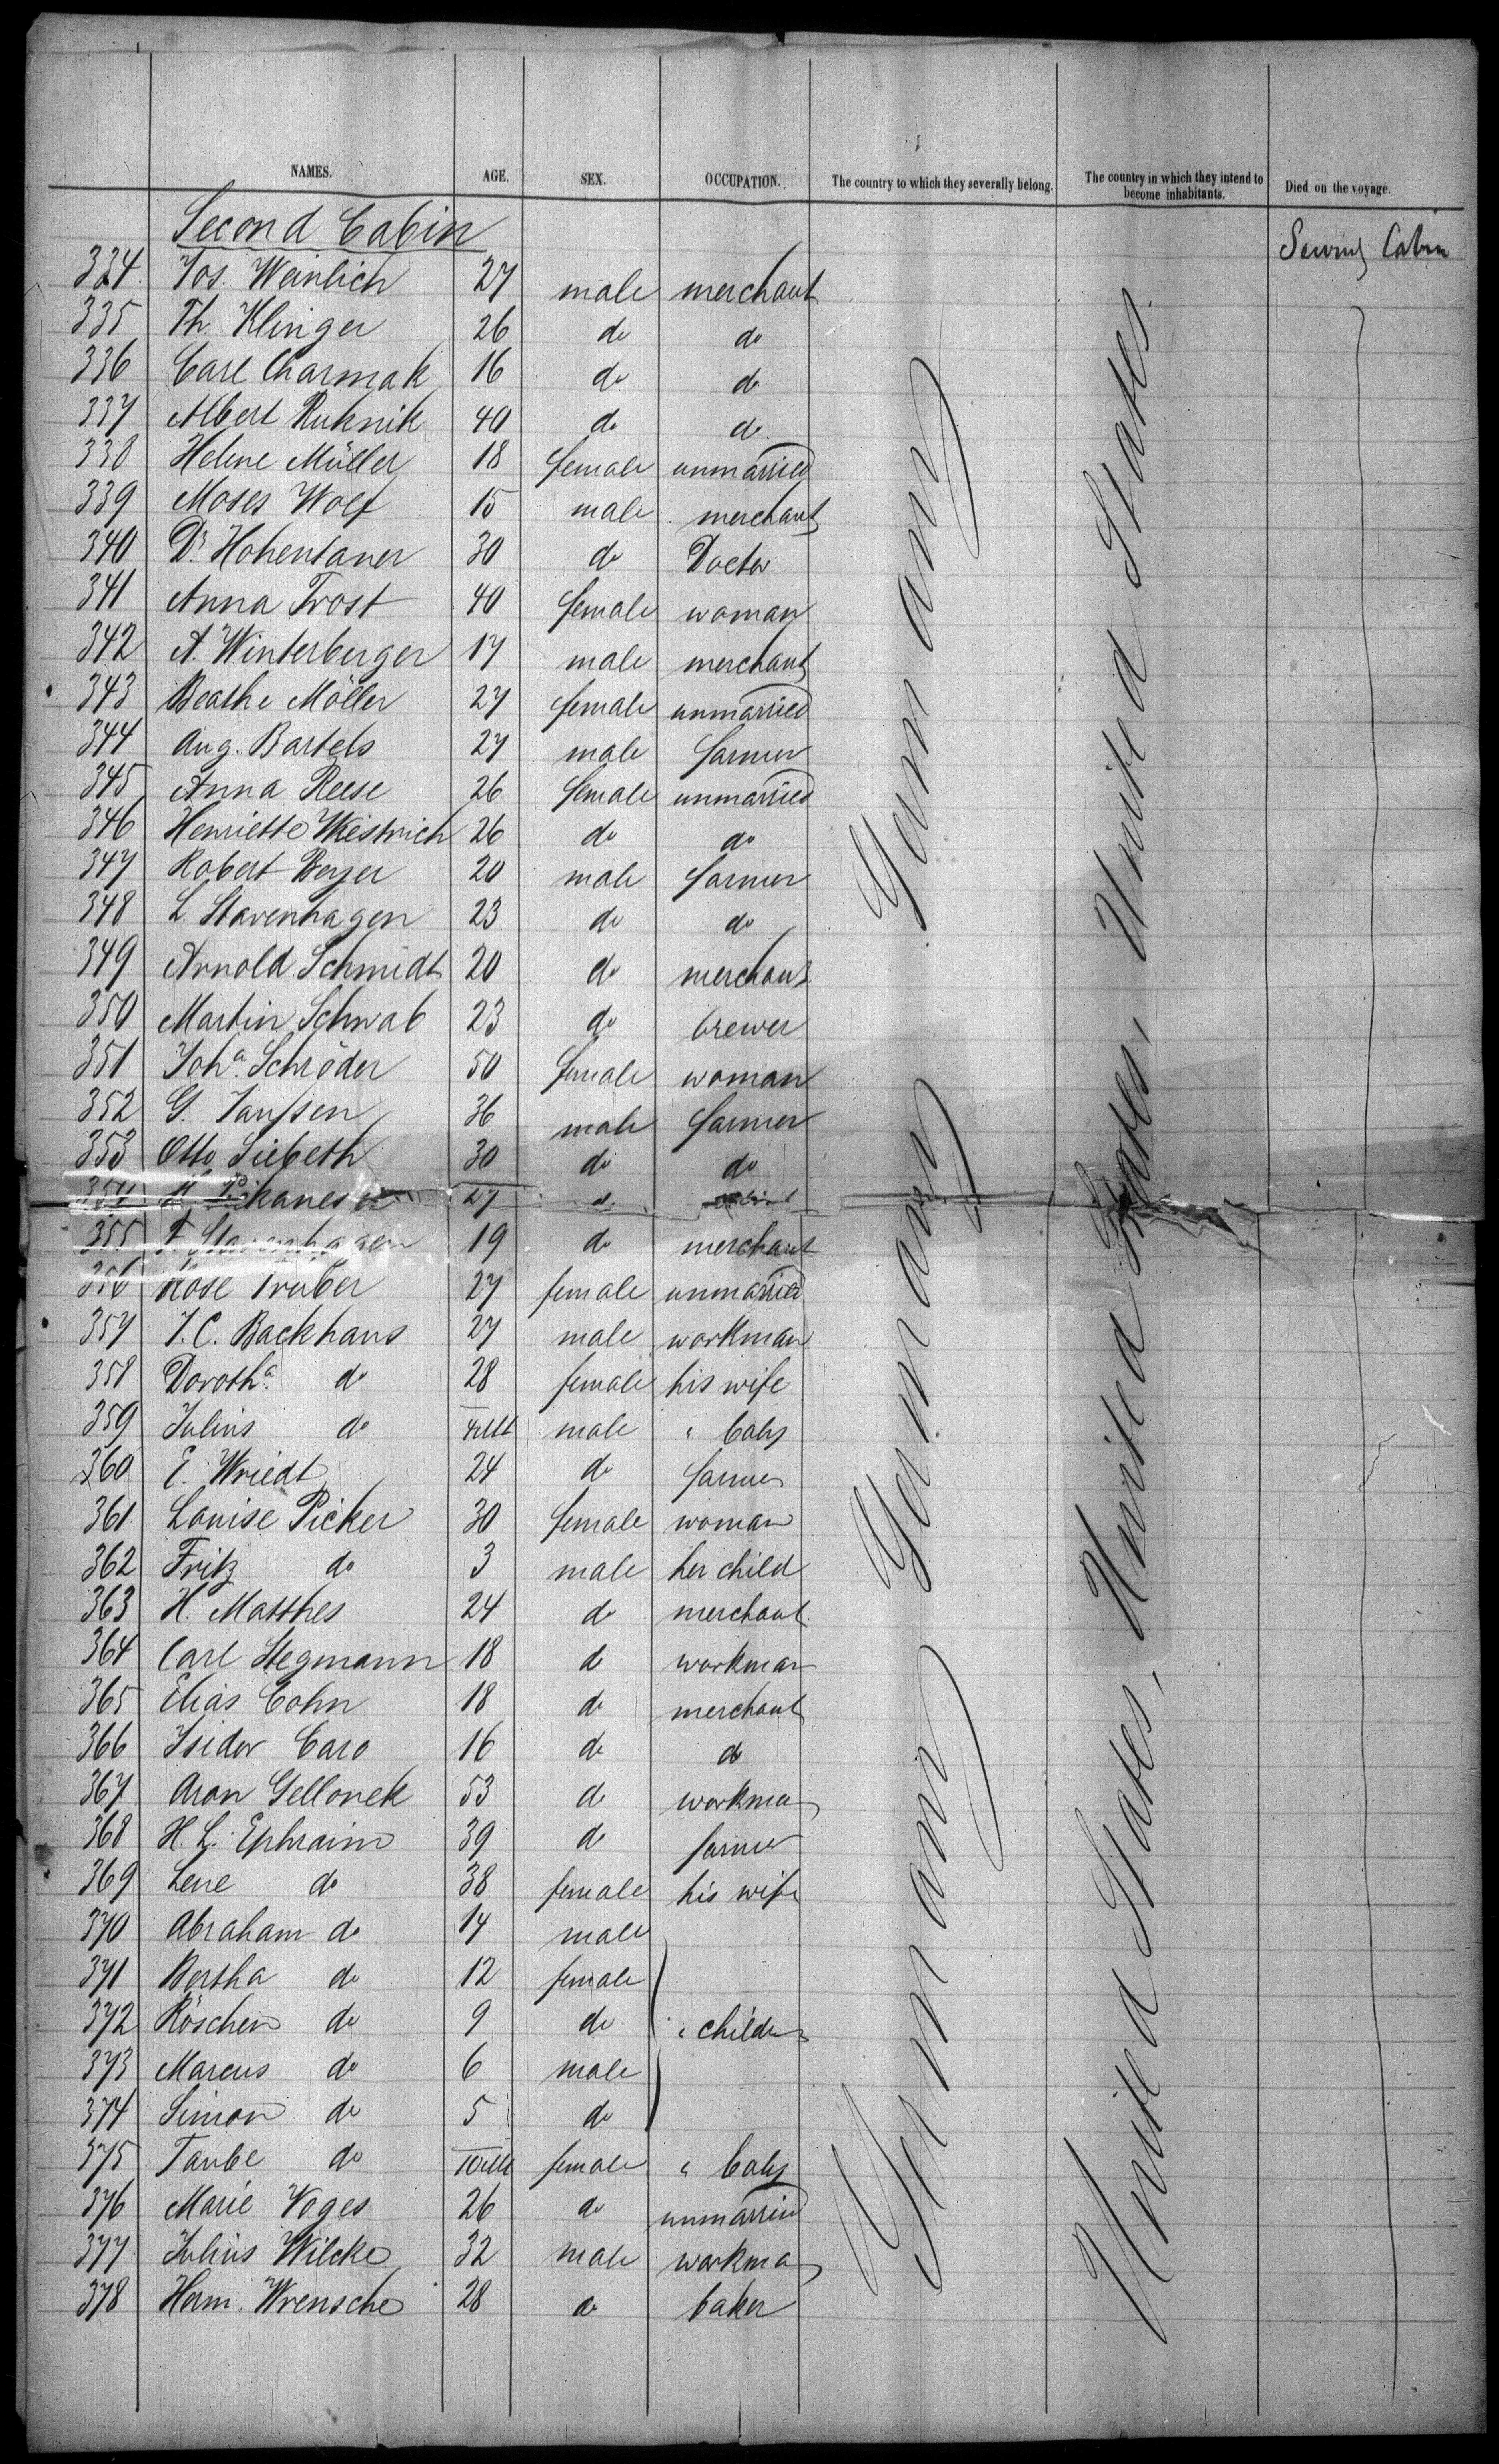 NAMES. AGE. SEX. OCCUPATION. The country to which they severally belong. The country in which they intend to become inhabitants. Died on the voyage.
Second Cabin
Cabin
334 Jos. Weinlich 27 male merchant
335 Th. Klinger 26 do do
336 Carl Charmak 16 do do
337 Albert Ruknik 40 do do
338 Helene Müller 18 female unmarried
339 Moses Wolf 15 male merchant
340 Dr. Hohentaner 30 do Doctor
341 Anna Trost 40 female woman
342 A. Winterberger 17 male merchant
343 Beathe Möller 27 female unmarried
344 Aug. Bartels 27 male farmer
345 Anna Reese 26 female unmarried
346 Henriette 26 do do
347 Robert Beyer 20 male farmer
348 L. Stavenhagen 23 do do
349 Arnold Schmidt 20 do merchant
350 Martin Schwab 23 do brewer
351 Joha. Schröder 50 female woman
352 G. Janssen 36 male farmer
353 Otto Siebeth 30 do do
354 27 do
355 F. Stavenhagen 19 do merchant
356 Rose Truber 27 female unmarried
357 J. C. Backhaus 27 male workman
358 Dorotha. do 28 female his wife
359 Julius do male " baby
360 E. Wriedt 24 do farmer
361 Louise Picker 30 female woman
362 Fritz do 3 male her child
363 H. Matthes 24 do merchant
364 Carl Stegmann 18 do workman
365 Elias Cohn 18 do merchant
366 Isidor Caro 16 do do
367 Aron Gellonek 53 do workman
368 H. L. Ephraim 39 do farmer
369 Lene do 38 female his wife
370 Abraham do 14 male
371 Bertha do 12 female
372 Röschen do 9 do " children
373 Marcus do 6 male
374 Simon do 5 do
375 Taube do female " baby
376 Marie Voges 26 do unmarried
377 Julius Wilcke 32 male workman
378 Herm. Wrensche 28 do baker
Germany Germany Germany
United States, United States, United States.